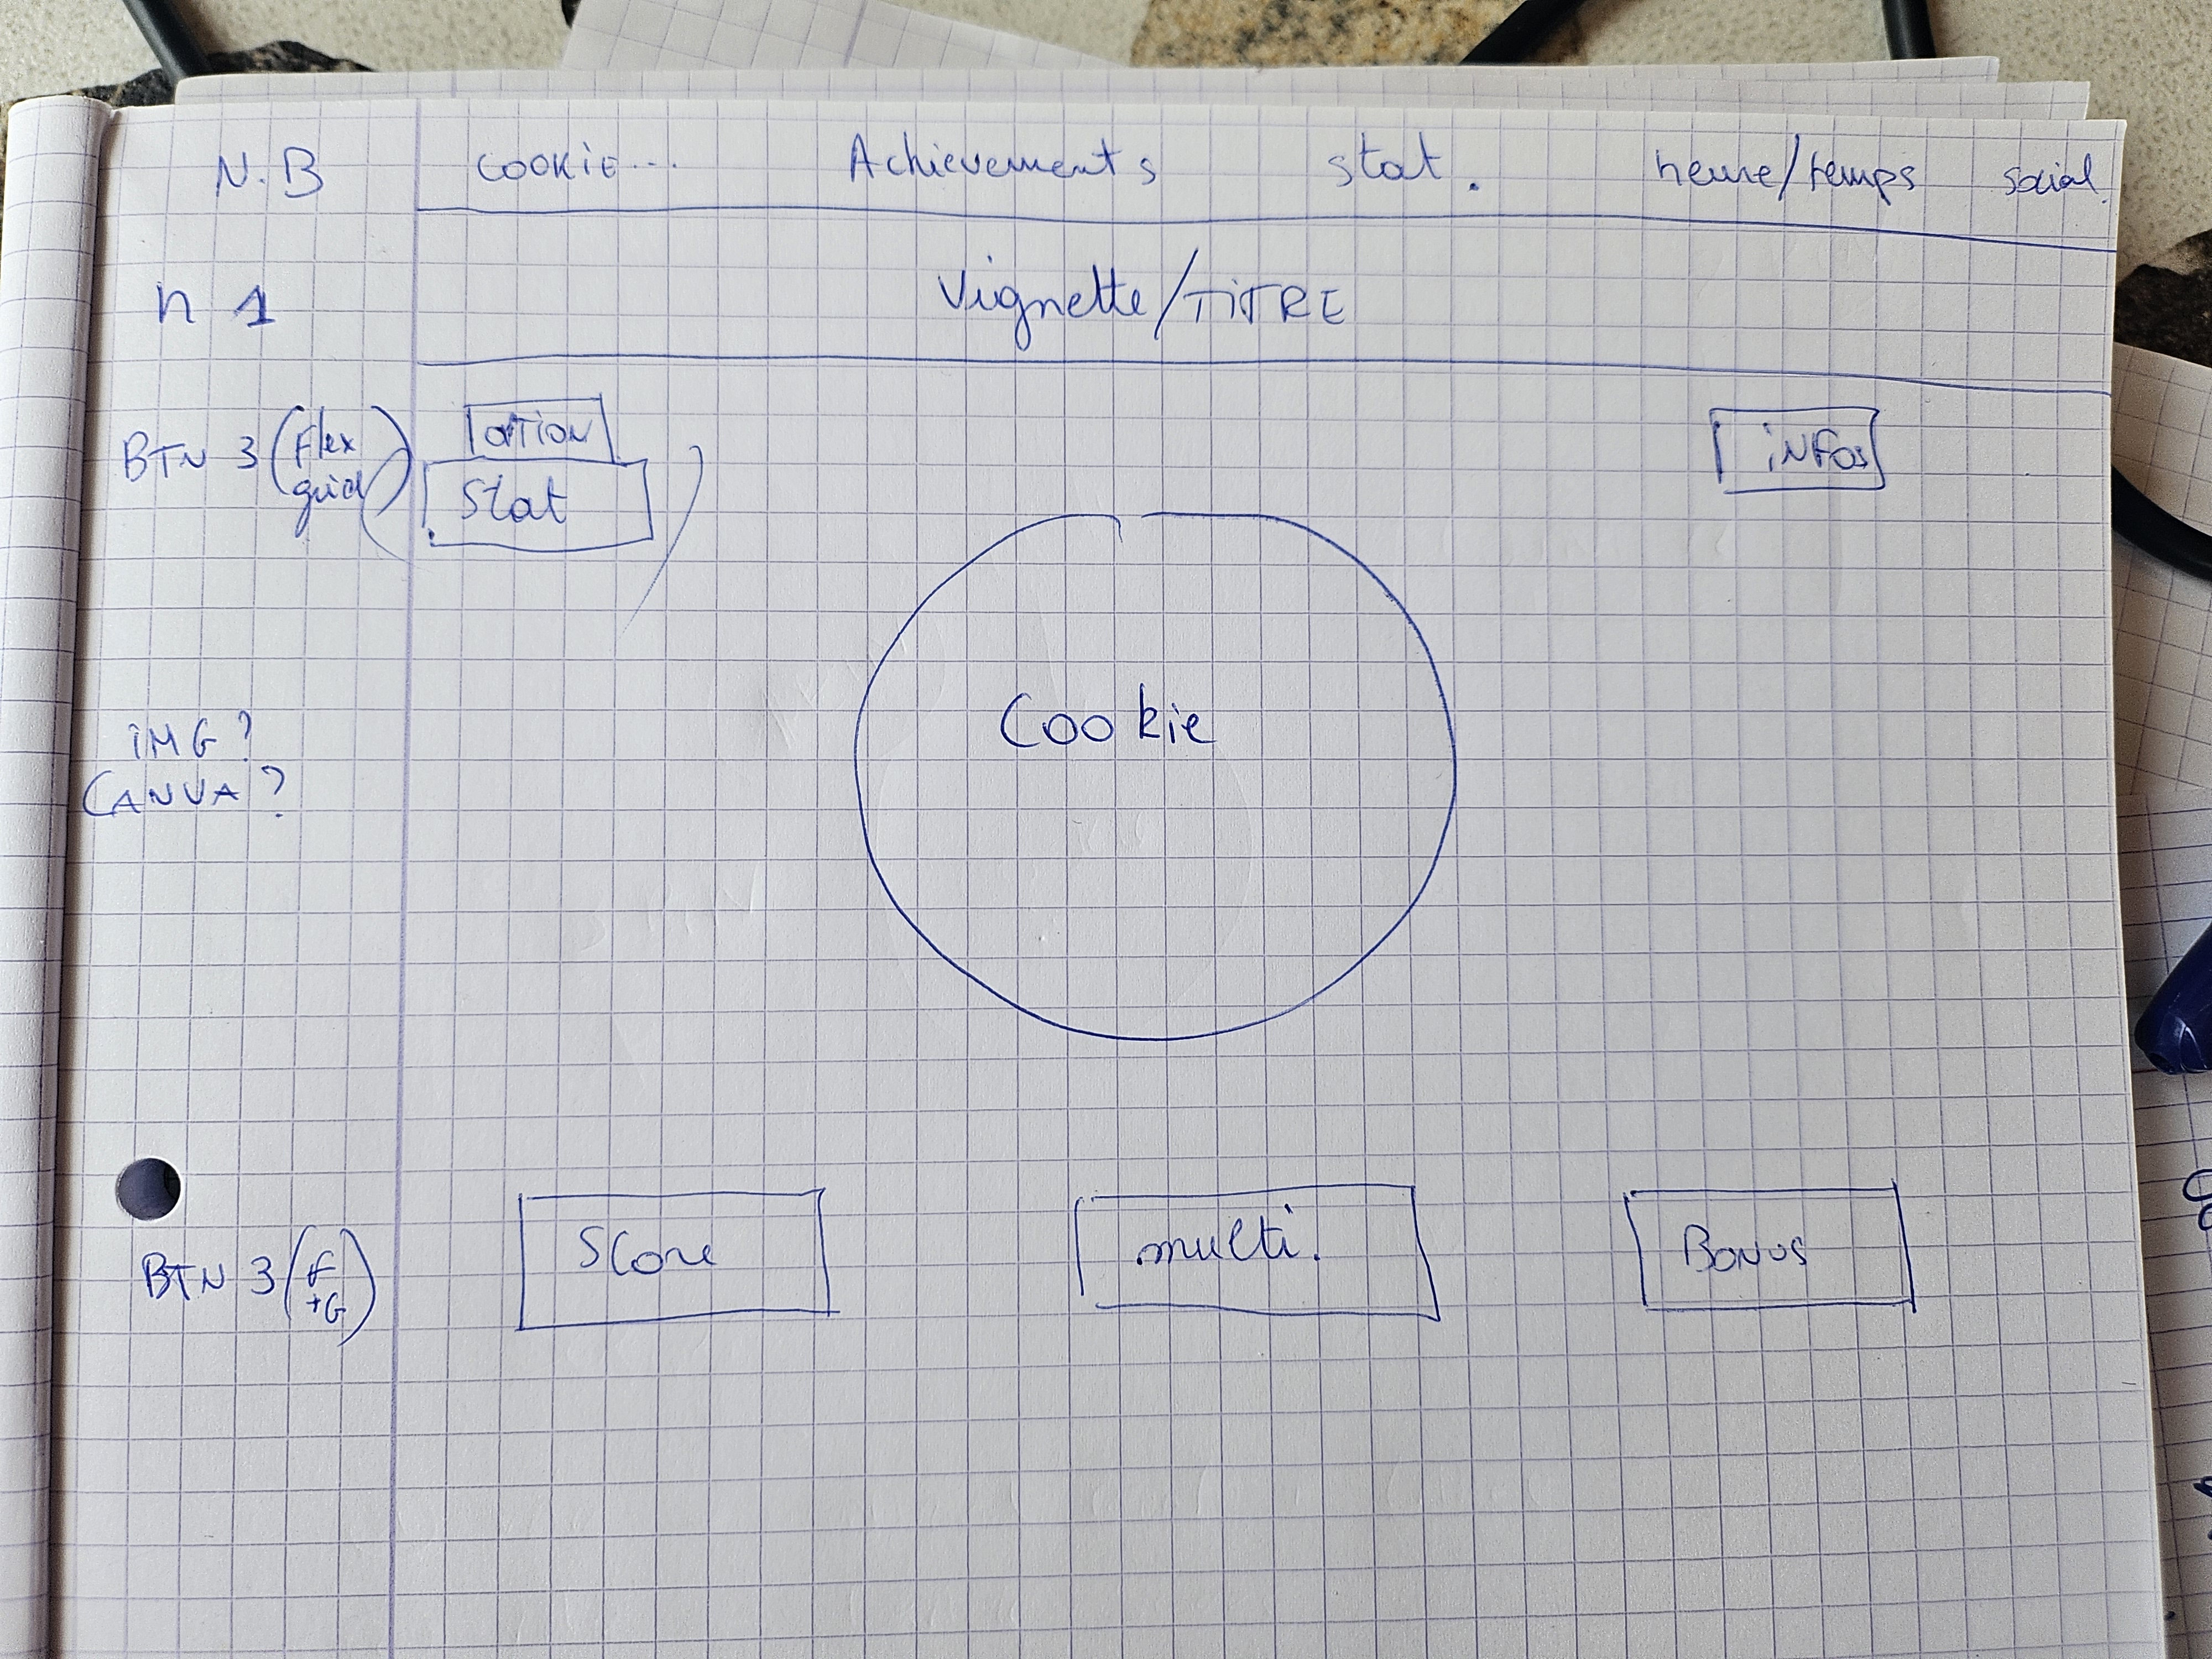 N.B cookie... Achievements stat. heure/temps social.
h 1 Vignette/TITRE
BTN 3 (Flex OPTION INFOS
grid) Stat
Cookie
IMG?
CANVA?
BTN 3 (F Score multi. BONUS
+G)